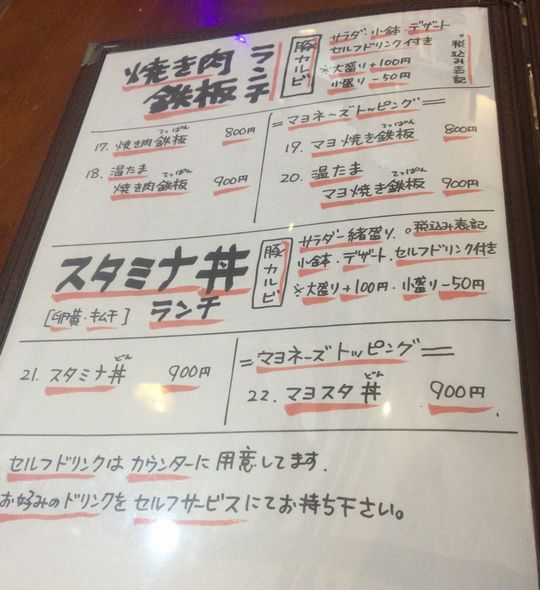 焼き肉
鉄板
ランチ
豚カルビ
サラダ・小鉢・デザート
セルフドリンク付き
※大盛り+100円
小盛り-50円
。税込み表記
17. 焼き肉鉄板 800円
てっぱん
18. 温たま
焼き肉鉄板 900円
てっぱん
=マヨネーズトッピング=
19. マヨ焼き鉄板 800円
てっぱん
20. 温たま
マヨ焼き鉄板 900円
てっぱん
スタミナ丼
[卵黄・キムチ] ランチ
豚カルビ
サラダ一緒盛り 。税込み表記
小鉢・デザート・セルフドリンク付き
※大盛り+100円・小盛り-50円
21. スタミナ丼 900円
どん
=マヨネーズトッピング=
22. マヨスタ丼 900円
どん
セルフドリンクはカウンターに用意してます.
お好みのドリンクをセルフサービスにてお持ち下さい。